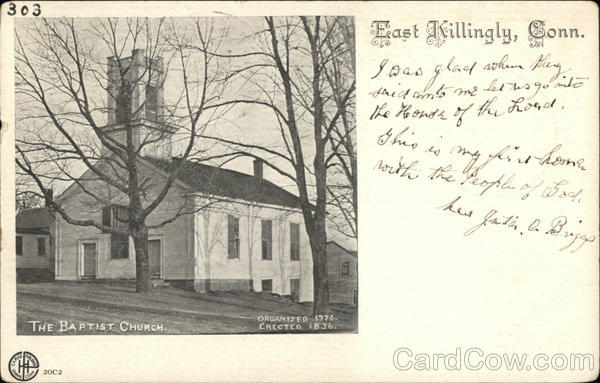 303
East Killingly, Conn.
I was glad when they
said unto me let us go into
the House of the Lord.
This is my first home
with the People of God.
Briggs
THE BAPTIST CHURCH.
ORGANIZED 1776.
ERECTED 1836.
20C2
CardCow.com